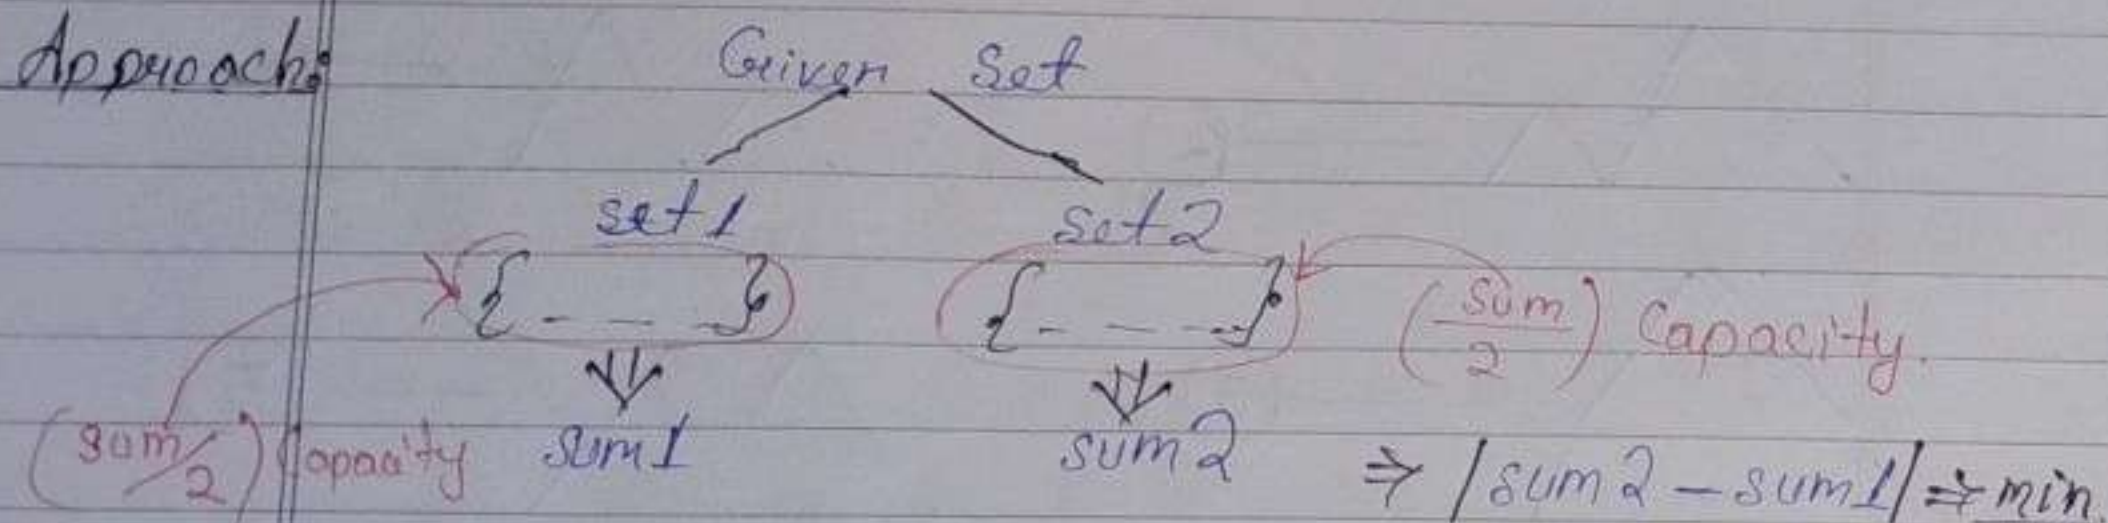 Approach: Given Set
set1 set2
{ _ _ _ } { _ _ _ } (sum/2) Capacity.
(sum/2) Capacity sum1 sum2 ⇒ |sum2 - sum1| ⇒ min.